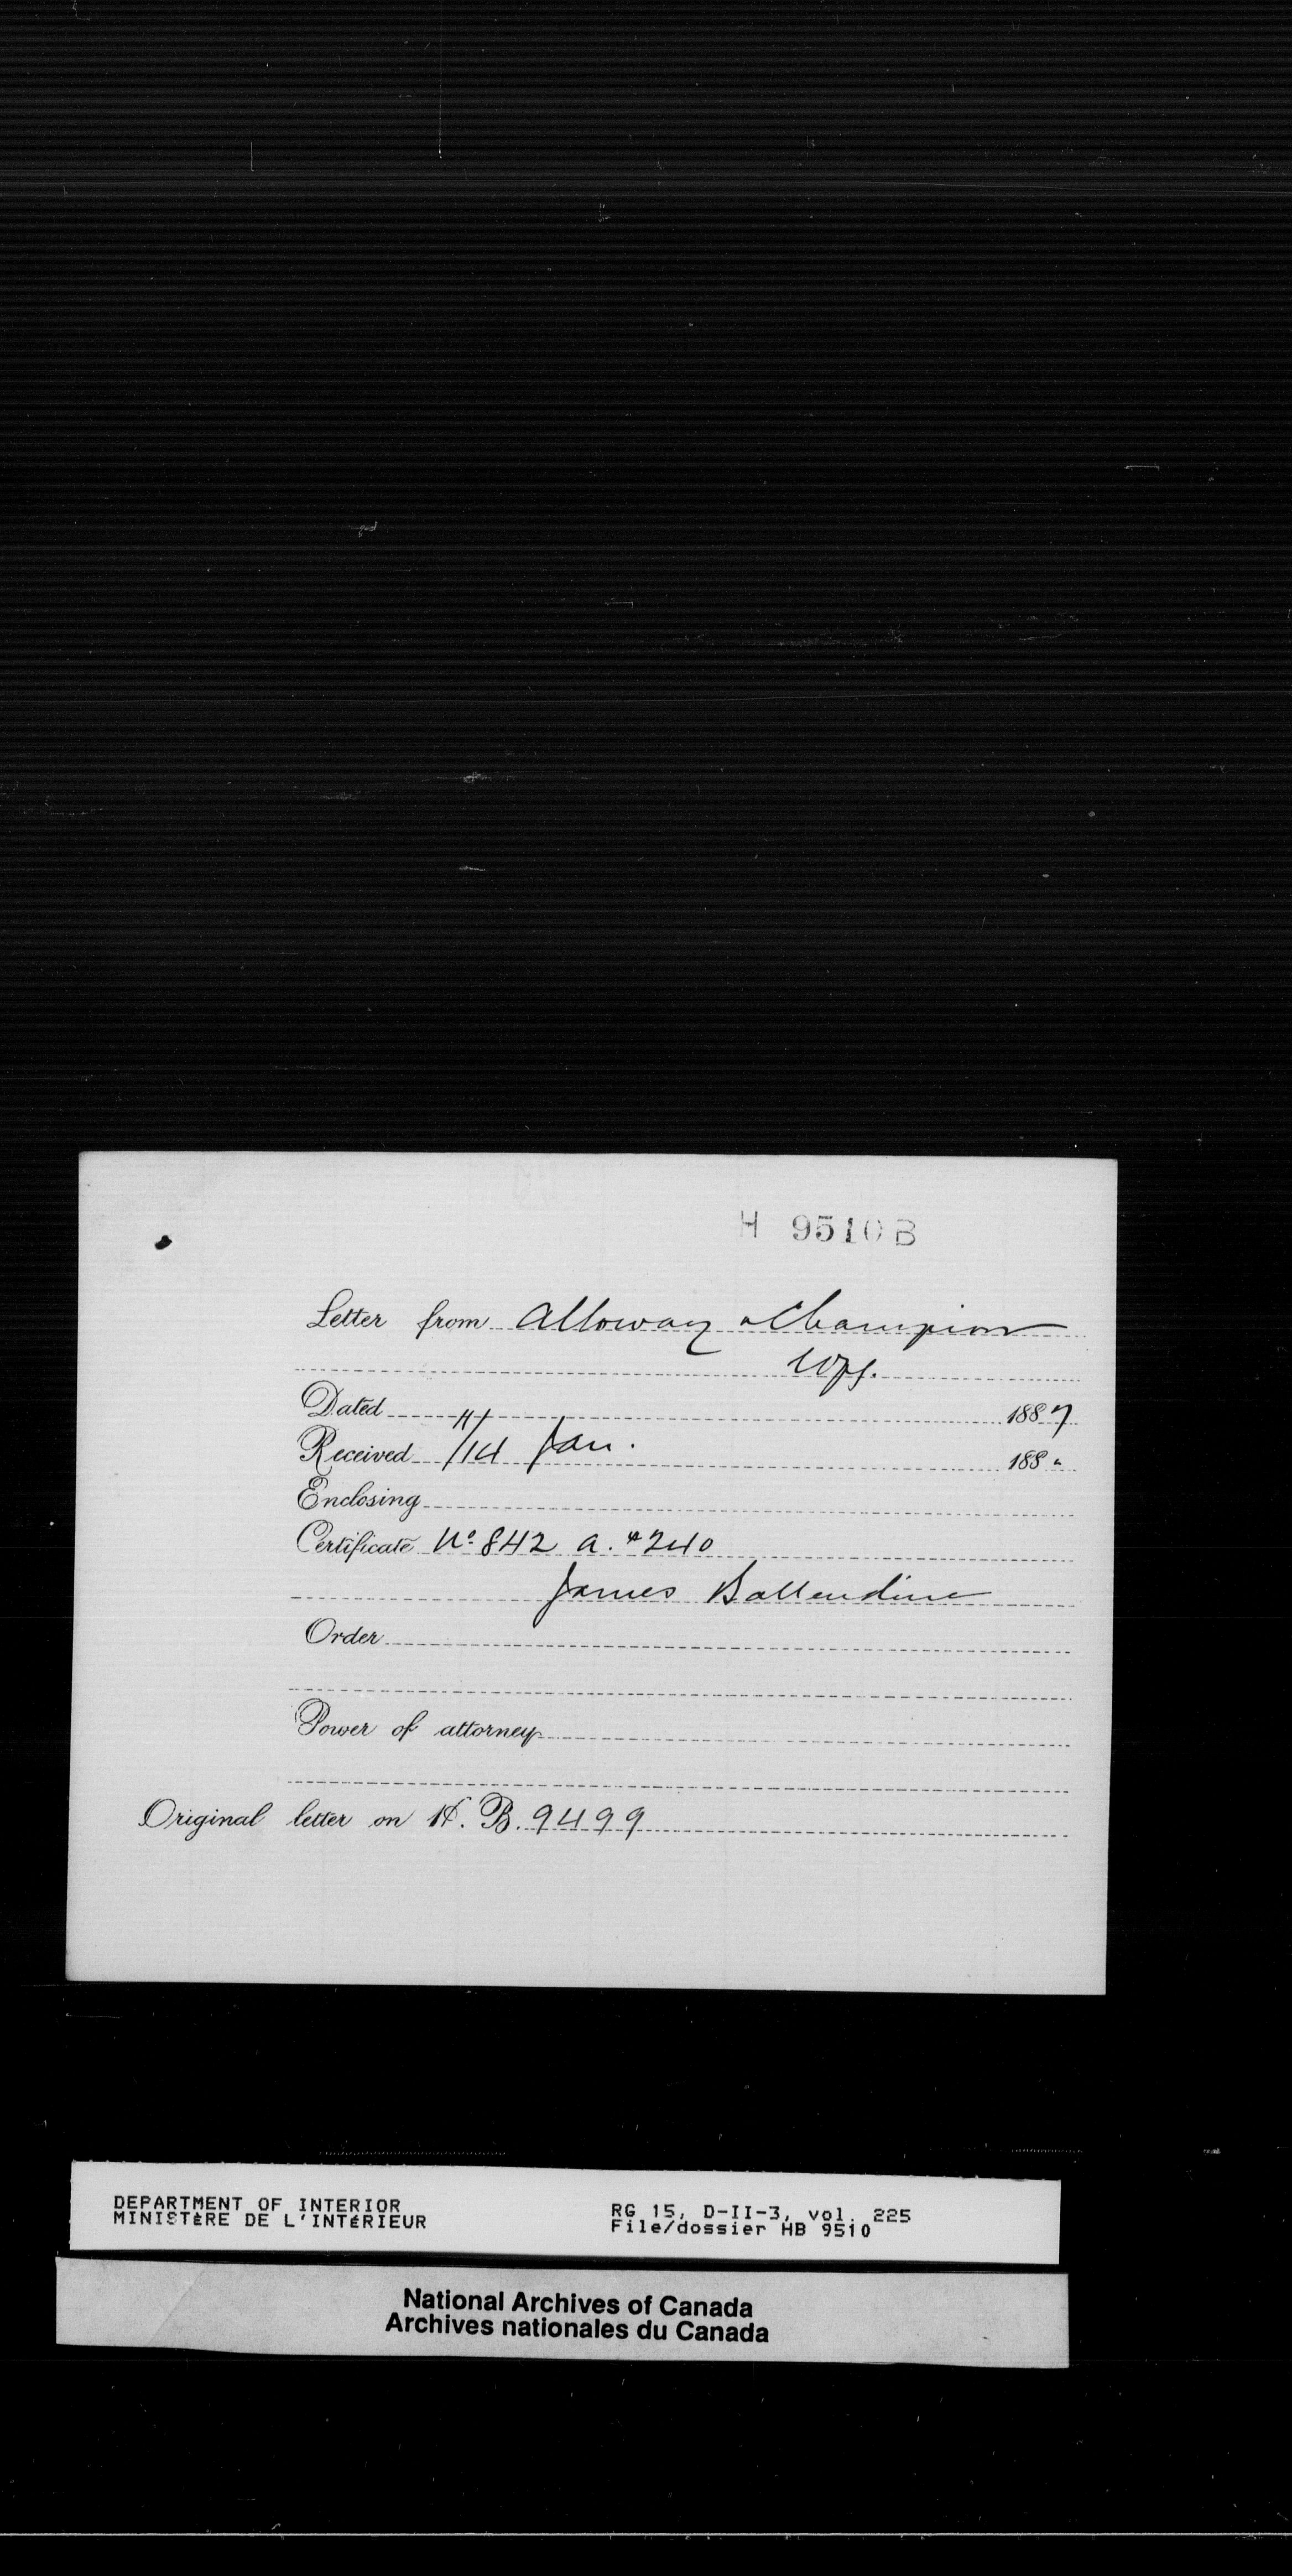 H 9510 B
Letter from Alloway & Champion
Wpg.
Dated 11/ 1887
Received /14 Jan. 188 "
Enclosing
Certificate No. 842 A. $240
James Ballendine
Order
Power of attorney
Original letter on H. B. 9499
DEPARTMENT OF INTERIOR
MINISTÈRE DE L'INTÉRIEUR
RG 15, D-II-3, vol. 225
File/dossier HB 9510
National Archives of Canada
Archives nationales du Canada